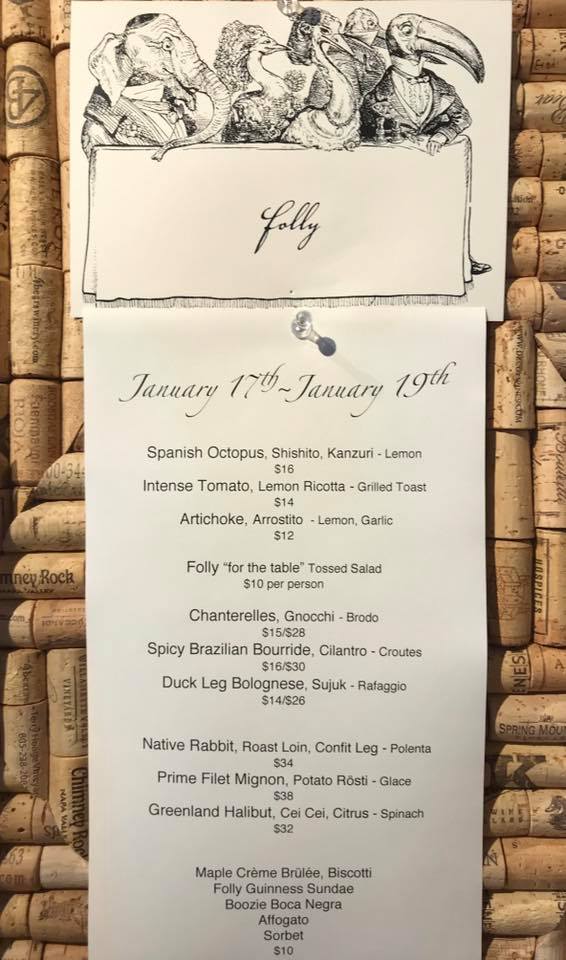 folly
January 17th~January 19th
Spanish Octopus, Shishito, Kanzuri - Lemon
$16
Intense Tomato, Lemon Ricotta - Grilled Toast
$14
Artichoke, Arrostito - Lemon, Garlic
$12
Folly “for the table” Tossed Salad
$10 per person
Chanterelles, Gnocchi - Brodo
$15/$28
Spicy Brazilian Bourride, Cilantro - Croutes
$16/$30
Duck Leg Bolognese, Sujuk - Rafaggio
$14/$26
Native Rabbit, Roast Loin, Confit Leg - Polenta
$34
Prime Filet Mignon, Potato Rösti - Glace
$38
Greenland Halibut, Cei Cei, Citrus - Spinach
$32
Maple Crème Brûlée, Biscotti
Folly Guinness Sundae
Boozie Boca Negra
Affogato
Sorbet
$10
mney Rock
Chimney Rock
SPRING MOU
HOSPICES
RIOJA